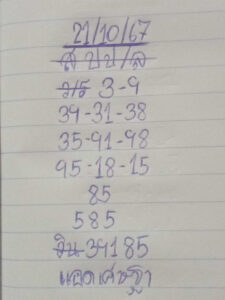 21/10/67
ส ปป/ล
วิ่ง 3-9
39-31-38
35-91-98
95-18-15
85
585
วิน 39185
แอดเศรษฐา